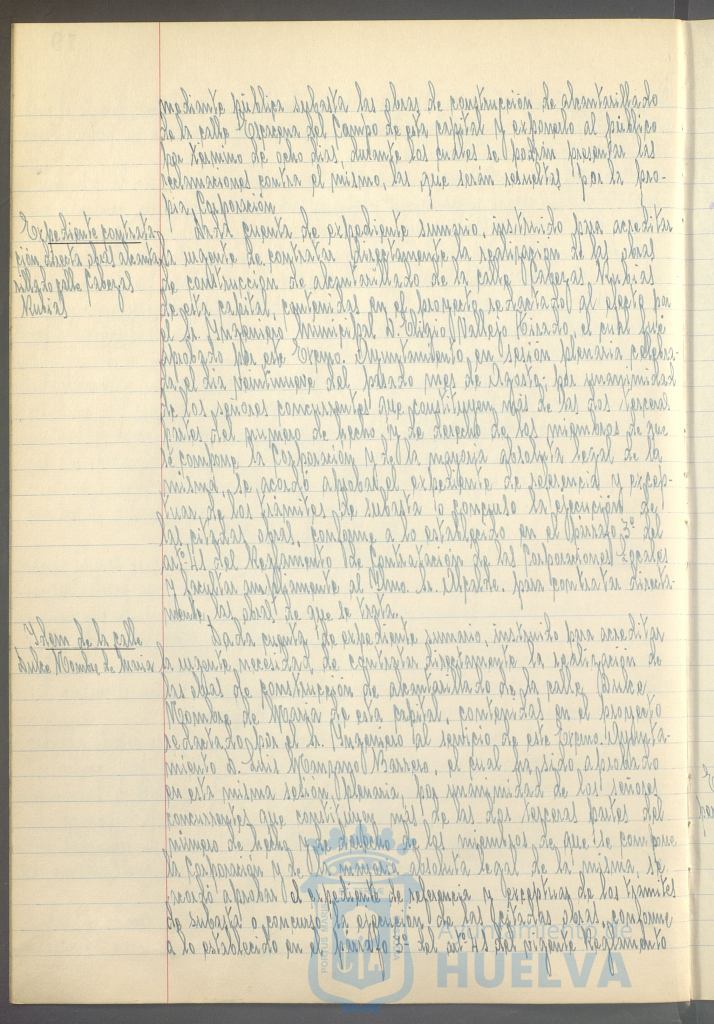 mediante pública subasta las obras de construcción de alcantarillado
de la calle Escacena del Campo de esta capital y exponerlo al público
por término de ocho días, durante los cuales se podrán presentar las
reclamaciones contra el mismo, las que serán resueltas por la pro-
pia Corporación
Expediente contrata-
ción directa obras alcanta
rillado calle Cabezas
Rubias
Dada cuenta de expediente sumario, instruido para acreditar
la urgente de contratar directamente la realización de las obras
de construcción de alcantarillado de la calle Cabezas Rubias
de esta capital, contenidas en el proyecto redactado al efecto por
el Sr. Ingeniero Municipal D. Eligio Vallejo Tirado, el cual fué
aprobado por este Excmo. Ayuntamiento, en sesión plenaria celebra-
da el día veintinueve del pasado mes de Agosto, por unanimidad
de los señores concurrentes que constituyen más de las dos terceras
partes del número de hecho y de derecho de los miembros de que
se compone la Corporación y de la mayoría absoluta legal de la
misma, se acordó aprobar el expediente de referencia y excep-
tuar de los trámites de subasta o concurso la ejecución de
las citadas obras, conforme a lo establecido en el párrafo 3º del
artº 41 del Reglamento de Contratación de las Corporaciones Locales
y facultar ampliamente al Iltmo. Sr. Alcalde para contratar directa-
mente las obras de que se trata.
Idem de la calle
Dulce Nombre de María
Dada cuenta de expediente sumario, instruido para acreditar
la urgente necesidad de contratar directamente la realización de
las obras de construcción de alcantarillado de la calle Dulce
Nombre de María de esta capital, contenidas en el proyecto
redactado por el Sr. Ingeniero al servicio de este Excmo. Ayunta-
miento D. Luis Manzano Barrero, el cual ha sido aprobado
en esta misma sesión plenaria, por unanimidad de los señores
concurrentes que constituyen más de las dos terceras partes del
número de hecho y de derecho de los miembros de que se compone
la Corporación y de la mayoría absoluta legal de la misma, se
acordó aprobar el expediente de referencia y exceptuar de los trámites
de subasta o concurso la ejecución de las citadas obras, conforme
a lo establecido en el párrafo 3º del artº 41 del vigente Reglamento
Ayuntamiento de
HUELVA